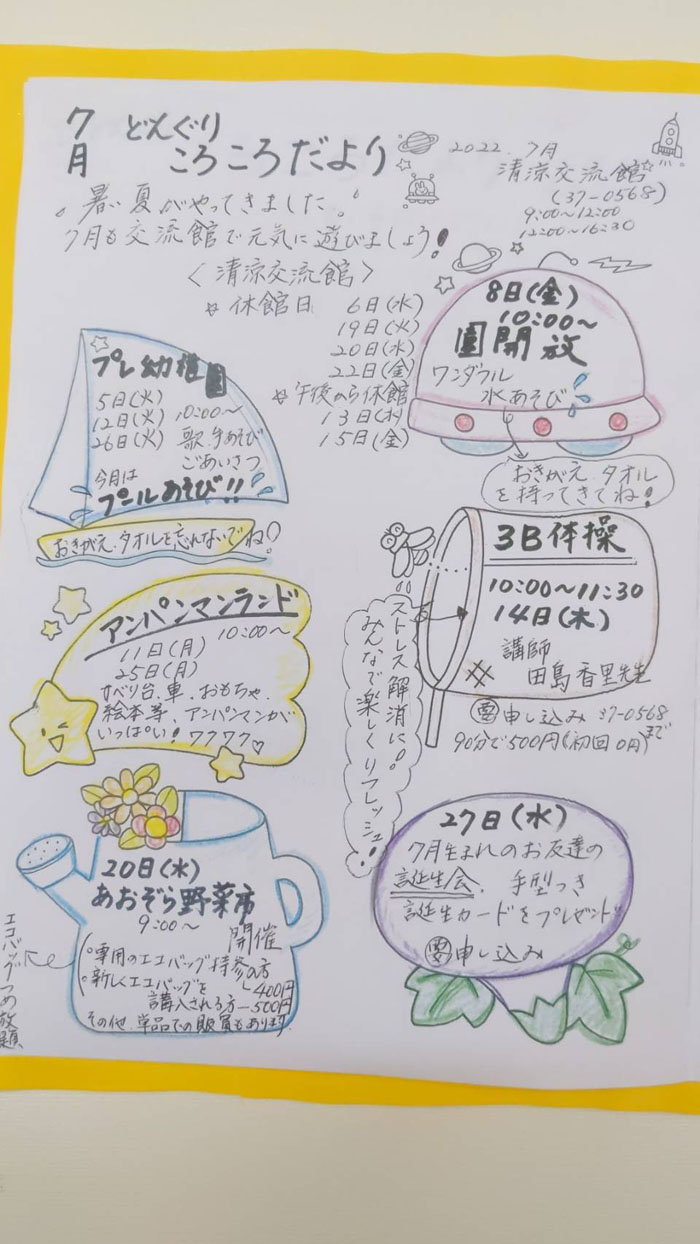 7月 どんぐり
ころころだより
2022.7月
清涼交流館
(37-0568)
9:00～12:00
12:00～16:30
暑い夏がやってきました。
7月も交流館で元気に遊びましょう!
〈清涼交流館〉
☆休館日 6日(水)
19日(火)
20日(水)
22日(金)
☆午後から休館
13日(水)
15日(金)
8日(金)
10:00～
園開放
ワンダフル
水あそび
おきがえ、タオル
を持ってきてね!
プレ幼稚園
5日(火)
12日(火) 10:00～
26日(火) 歌、手あそび
ごあいさつ
今月は
プールあそび!!
おきがえ、タオルを忘れないでね♡
3B体操
10:00～11:30
14日(木)
講師
田島香里先生
要申し込み 37-0568まで
90分で500円(初回0円)
ストレス解消に!
みんなで楽しくリフレッシュ!
アンパンマンランド
10:00～
11日(月)
25日(月)
すべり台、車、おもちゃ、
絵本等、アンパンマンが
いっぱい!ワクワク♡
20日(水)
あおぞら野菜市
9:00～
開催
○専用のエコバッグ持参の方
400円
○新しくエコバッグを
購入される方―500円
その他、単品での販売もあります
エコバッグつめ放題
27日(水)
7月生まれのお友達の
誕生会、手型つき
誕生カードをプレゼント
要申し込み